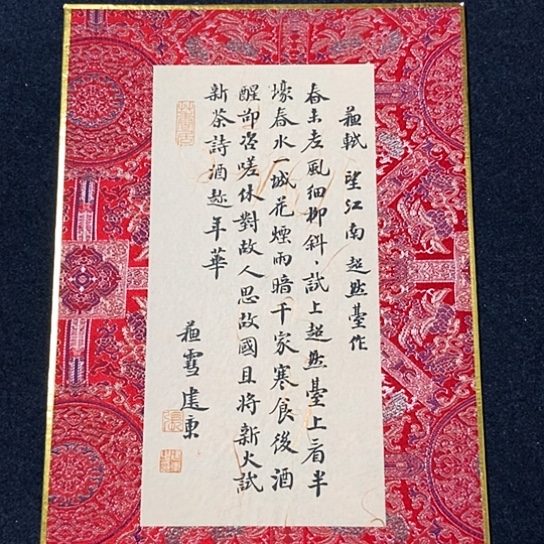 蘇軾 望江南 超然臺作
春未老風細柳斜、試上超然臺上看半
壕春水一城花煙雨暗千家寒食後酒
醒卻咨嗟休對故人思故國且將新火試
新茶詩酒趁年華
雪建東